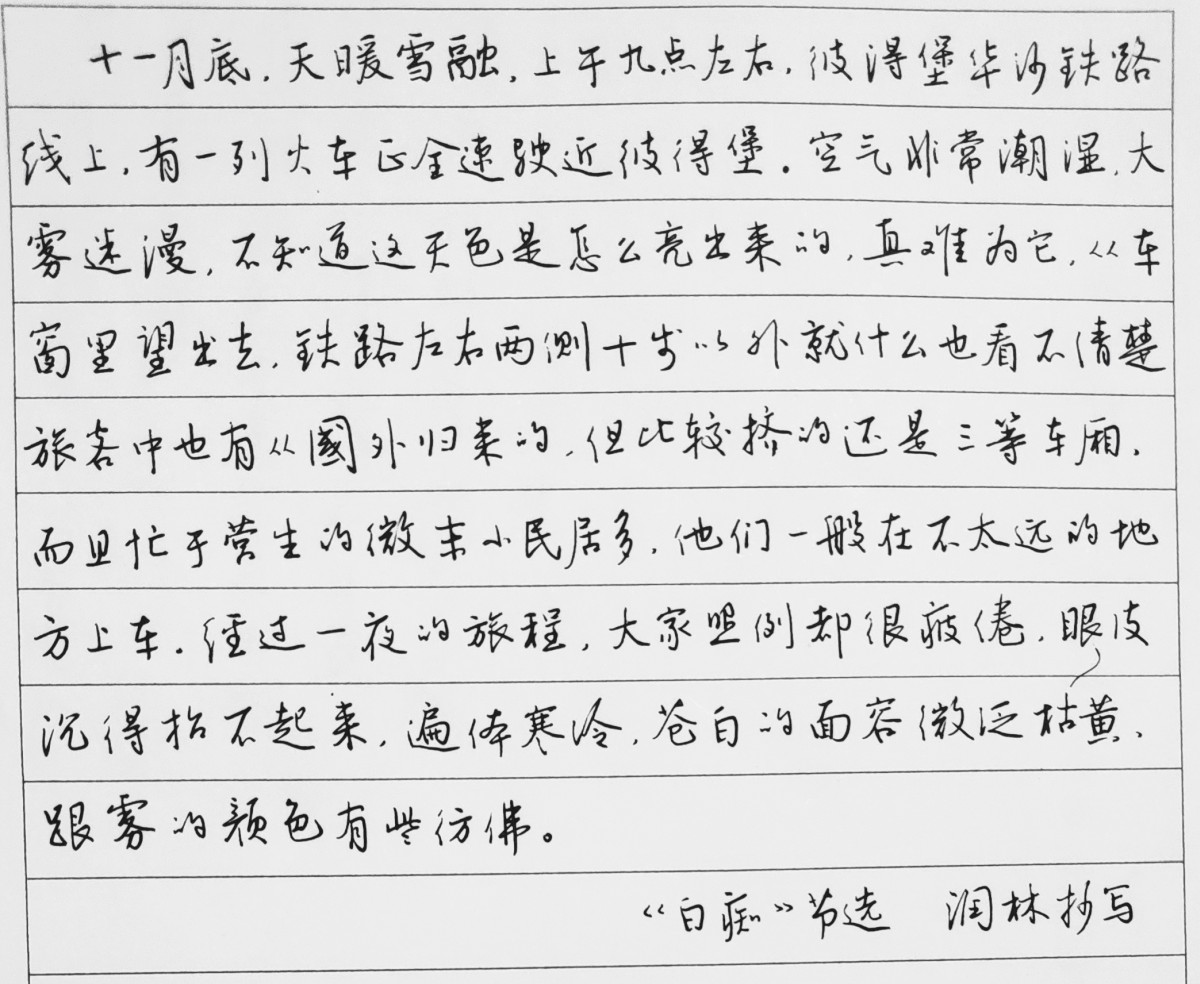 十一月底,天暖雪融,上午九点左右,彼得堡华沙铁路
线上,有一列火车正全速驶近彼得堡。空气非常潮湿,大
雾迷漫,不知道这天色是怎么亮出来的,真难为它,从车
窗里望出去,铁路左右两侧十步以外就什么也看不清楚
旅客中也有从國外归来的,但比较挤的还是三等车厢,
而且忙于营生的微末小民居多,他们一般在不太远的地
方上车。经过一夜的旅程,大家照例都很疲倦,眼皮
沉得抬不起来,遍体寒冷,苍白的面容微泛枯黄,
跟雾的颜色有些彷彿。
《白痴》节选 润林抄写